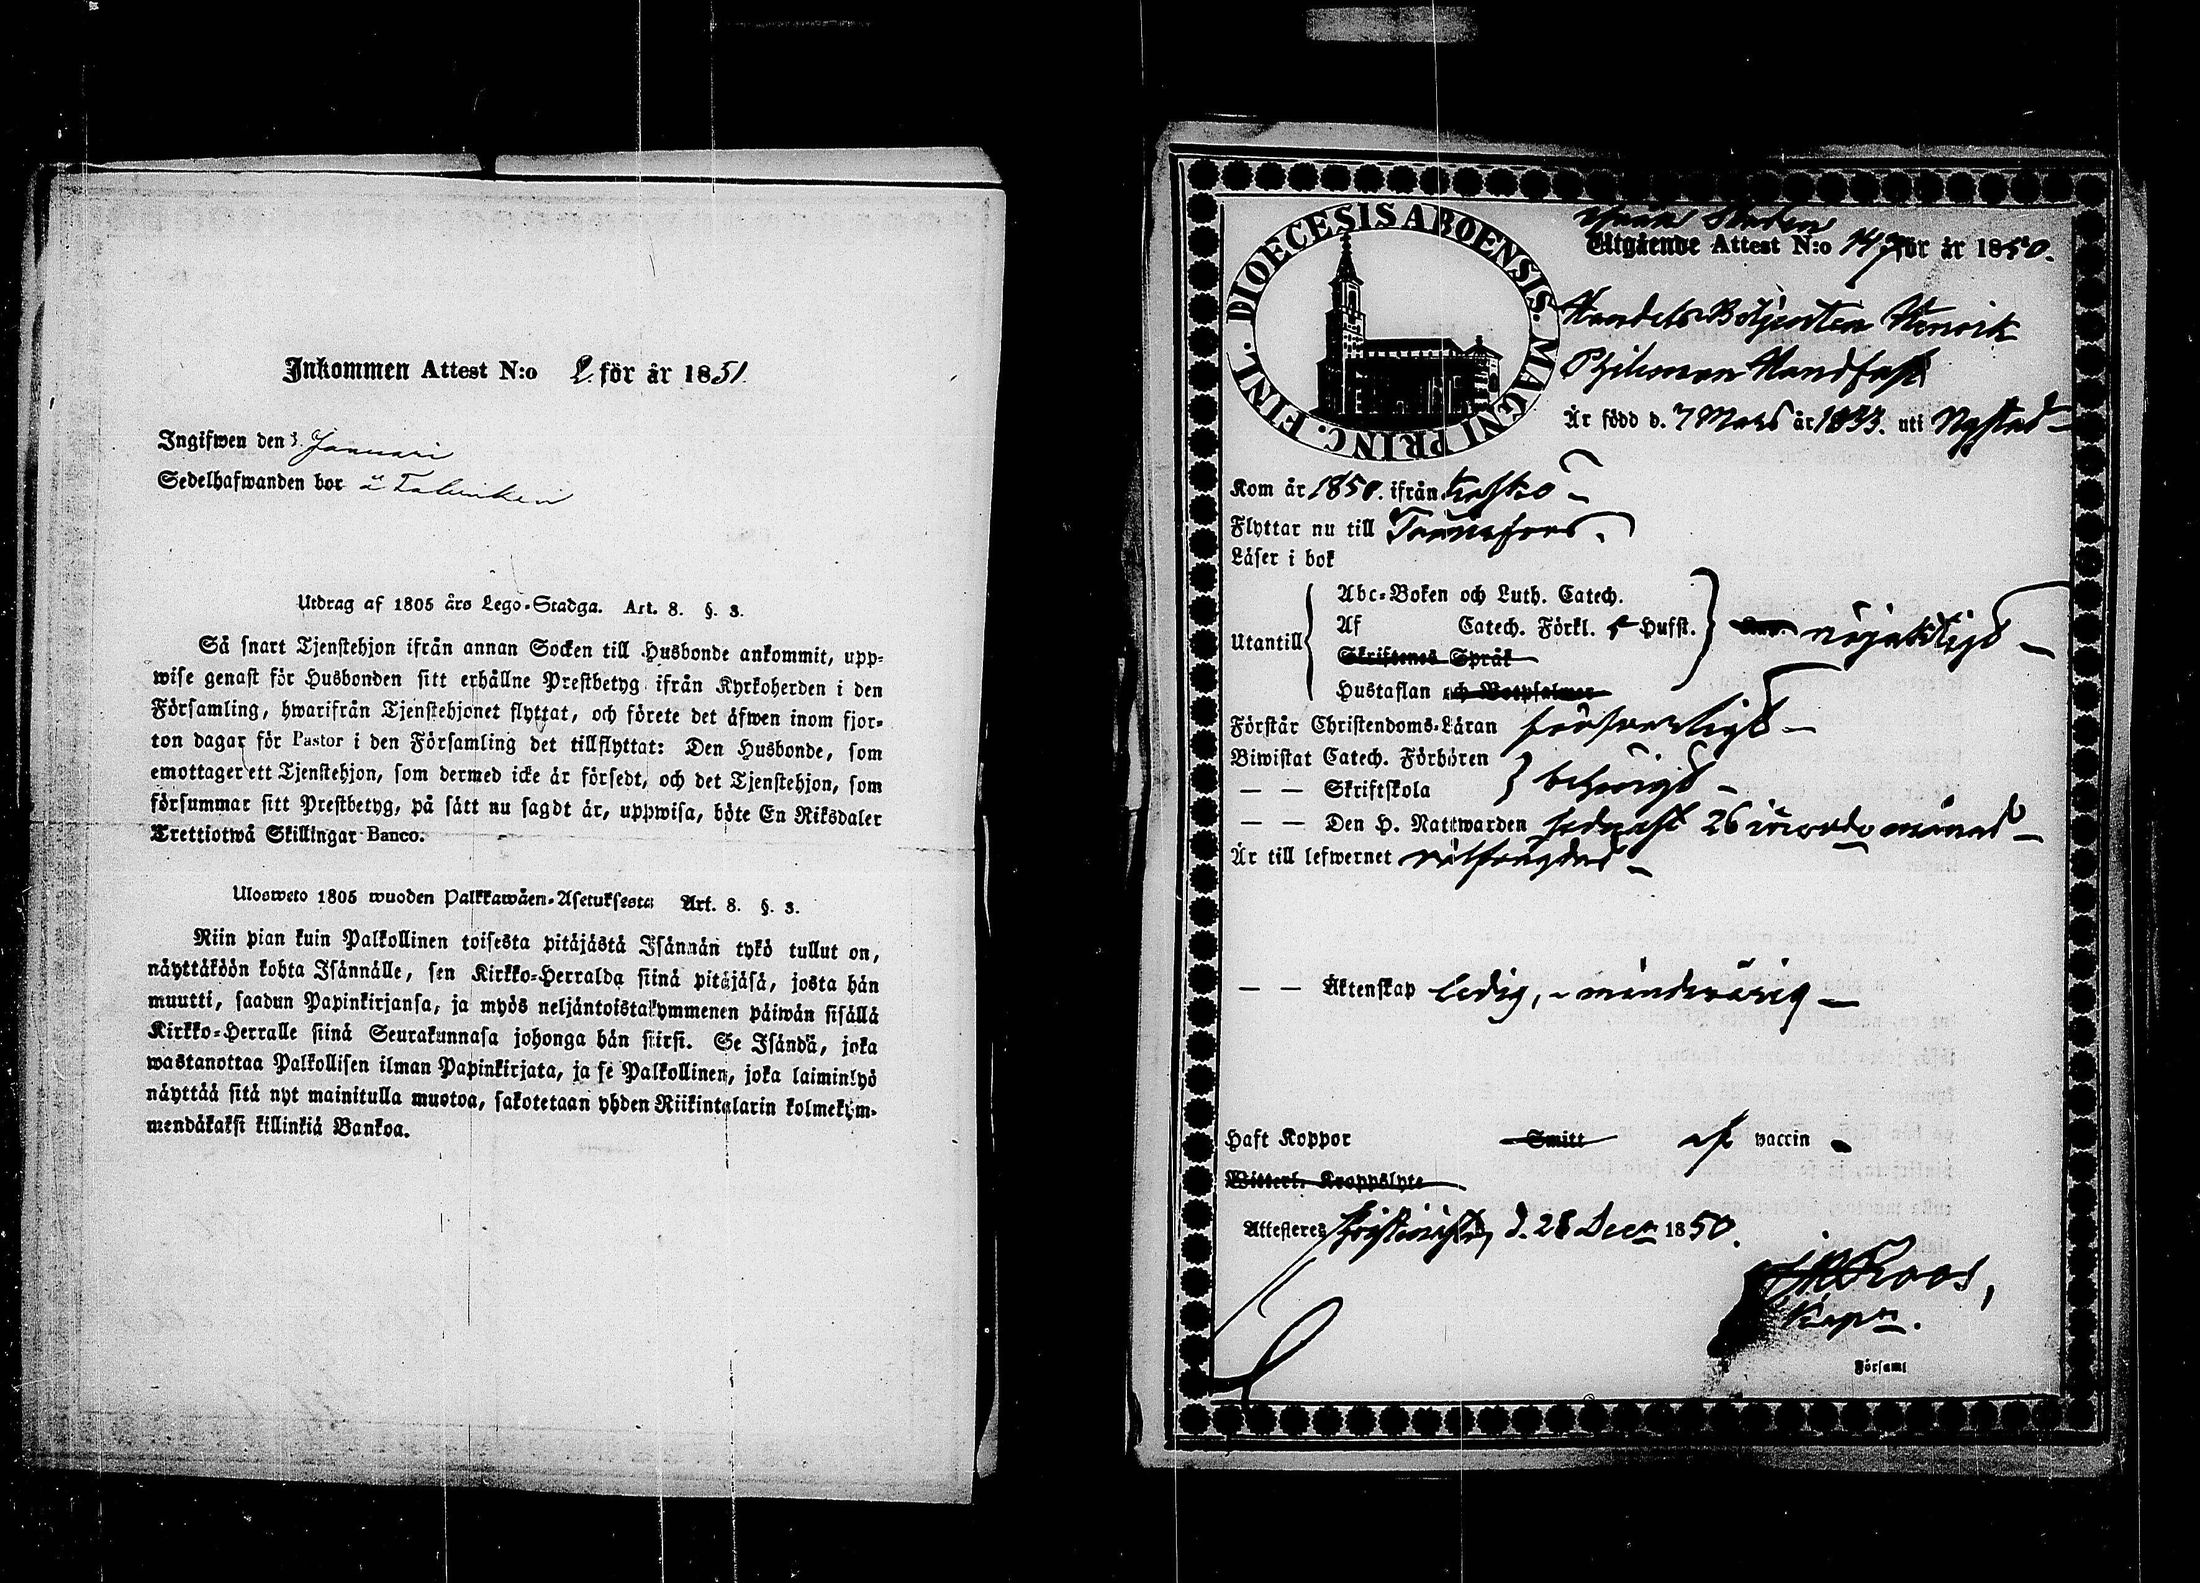 Inkommen Attest N:o 2 för år 1851.
Ingifwen den 3. Januari
Sedelhafwanden bor å Fabriken
Utdrag af 1805 års Lego-Stadga. Art. 8. §. 3.
Så snart Tjenstehjon ifrån annan Socken till Husbonde ankommit, upp-
wise genast för Husbonden sitt erhållne Prestbetyg ifrån Kyrkoherden i den
Församling, hwarifrån Tjenstehjonet flyttat, och förete det äfwen inom fjor-
ton dagar för Pastor i den Församling det tillflyttat: Den Husbonde, som
emottager ett Tjenstehjon, som dermed icke är försedt, och det Tjenstehjon, som
försummar sitt Prestbetyg, på sätt nu sagdt är, uppwisa, böte En Riksdaler
Trettiotwå Skillingar Banco.
Ulosweto 1805 wuoden Palkkawäen-Asetuksesta Art. 8. §. 3.
Niin pian kuin Palkollinen toisesta pitäjästä Isännän tykö tullut on,
näyttäköön kohta Isännälle, sen Kirkko-Herralda siinä pitäjäsä, josta hän
muutti, saadun Papinkirjansa, ja myös neljäntoistakymmenen päiwän sisällä
Kirkko-Herralle siinä Seurakunnasa johonga hän siirsi. Se Isändä, joka
wastanottaa Palkollisen ilman Papinkirjata, ja se Palkollinen, joka laiminlyö
näyttää sitä nyt mainitulla muotoa, sakotetaan yhden Riikintalarin kolmekym-
mendäkaksi killinkiä Bankoa.
DIOECESIS ABOENSIS. MAGNI PRINC. FINL.
Utgående Attest N:o 147 för år 1850.
Handels-Betjenten Henrik
Handfast
Är född d. 7 Mars år 1833. uti Nystad
Kom år 1850. ifrån Kaskö
Flyttar nu till Tammerfors.
Läser i bok
Abc-Boken och Luth. Catech.
Utantill Af Catech. Förkl. Husst. nöjaktigt
Skriftenes Språk
Hustaflan och Botpsalmer
Förstår Christendoms-Läran försvarligt
Biwistat Catech. Förhören
— — Skriftskola behörigt
— — Den H. Nattwarden sednast 26 månad
Är till lefwernet välfrägdad
— — Äktenskap ledig, minderårig
Haft Koppor Smitt af vaccin
Witterl. Kroppslyte
Attesteres Christinestad, d. 28 Decr 1850.
Roos,
Kapn.
Församl